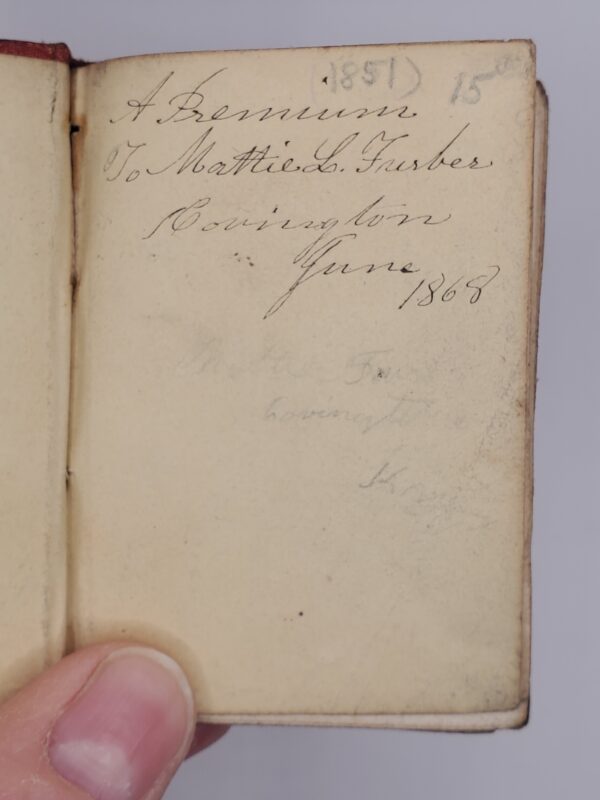 (1851) 15
A Premium
To Mattie L. Furber
Covington
June
1868
Mattie
Covington